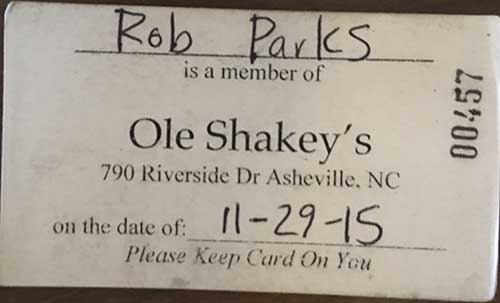 Rob Parks
is a member of
Ole Shakey's
790 Riverside Dr Asheville, NC
on the date of: 11-29-15
Please Keep Card On You
00457